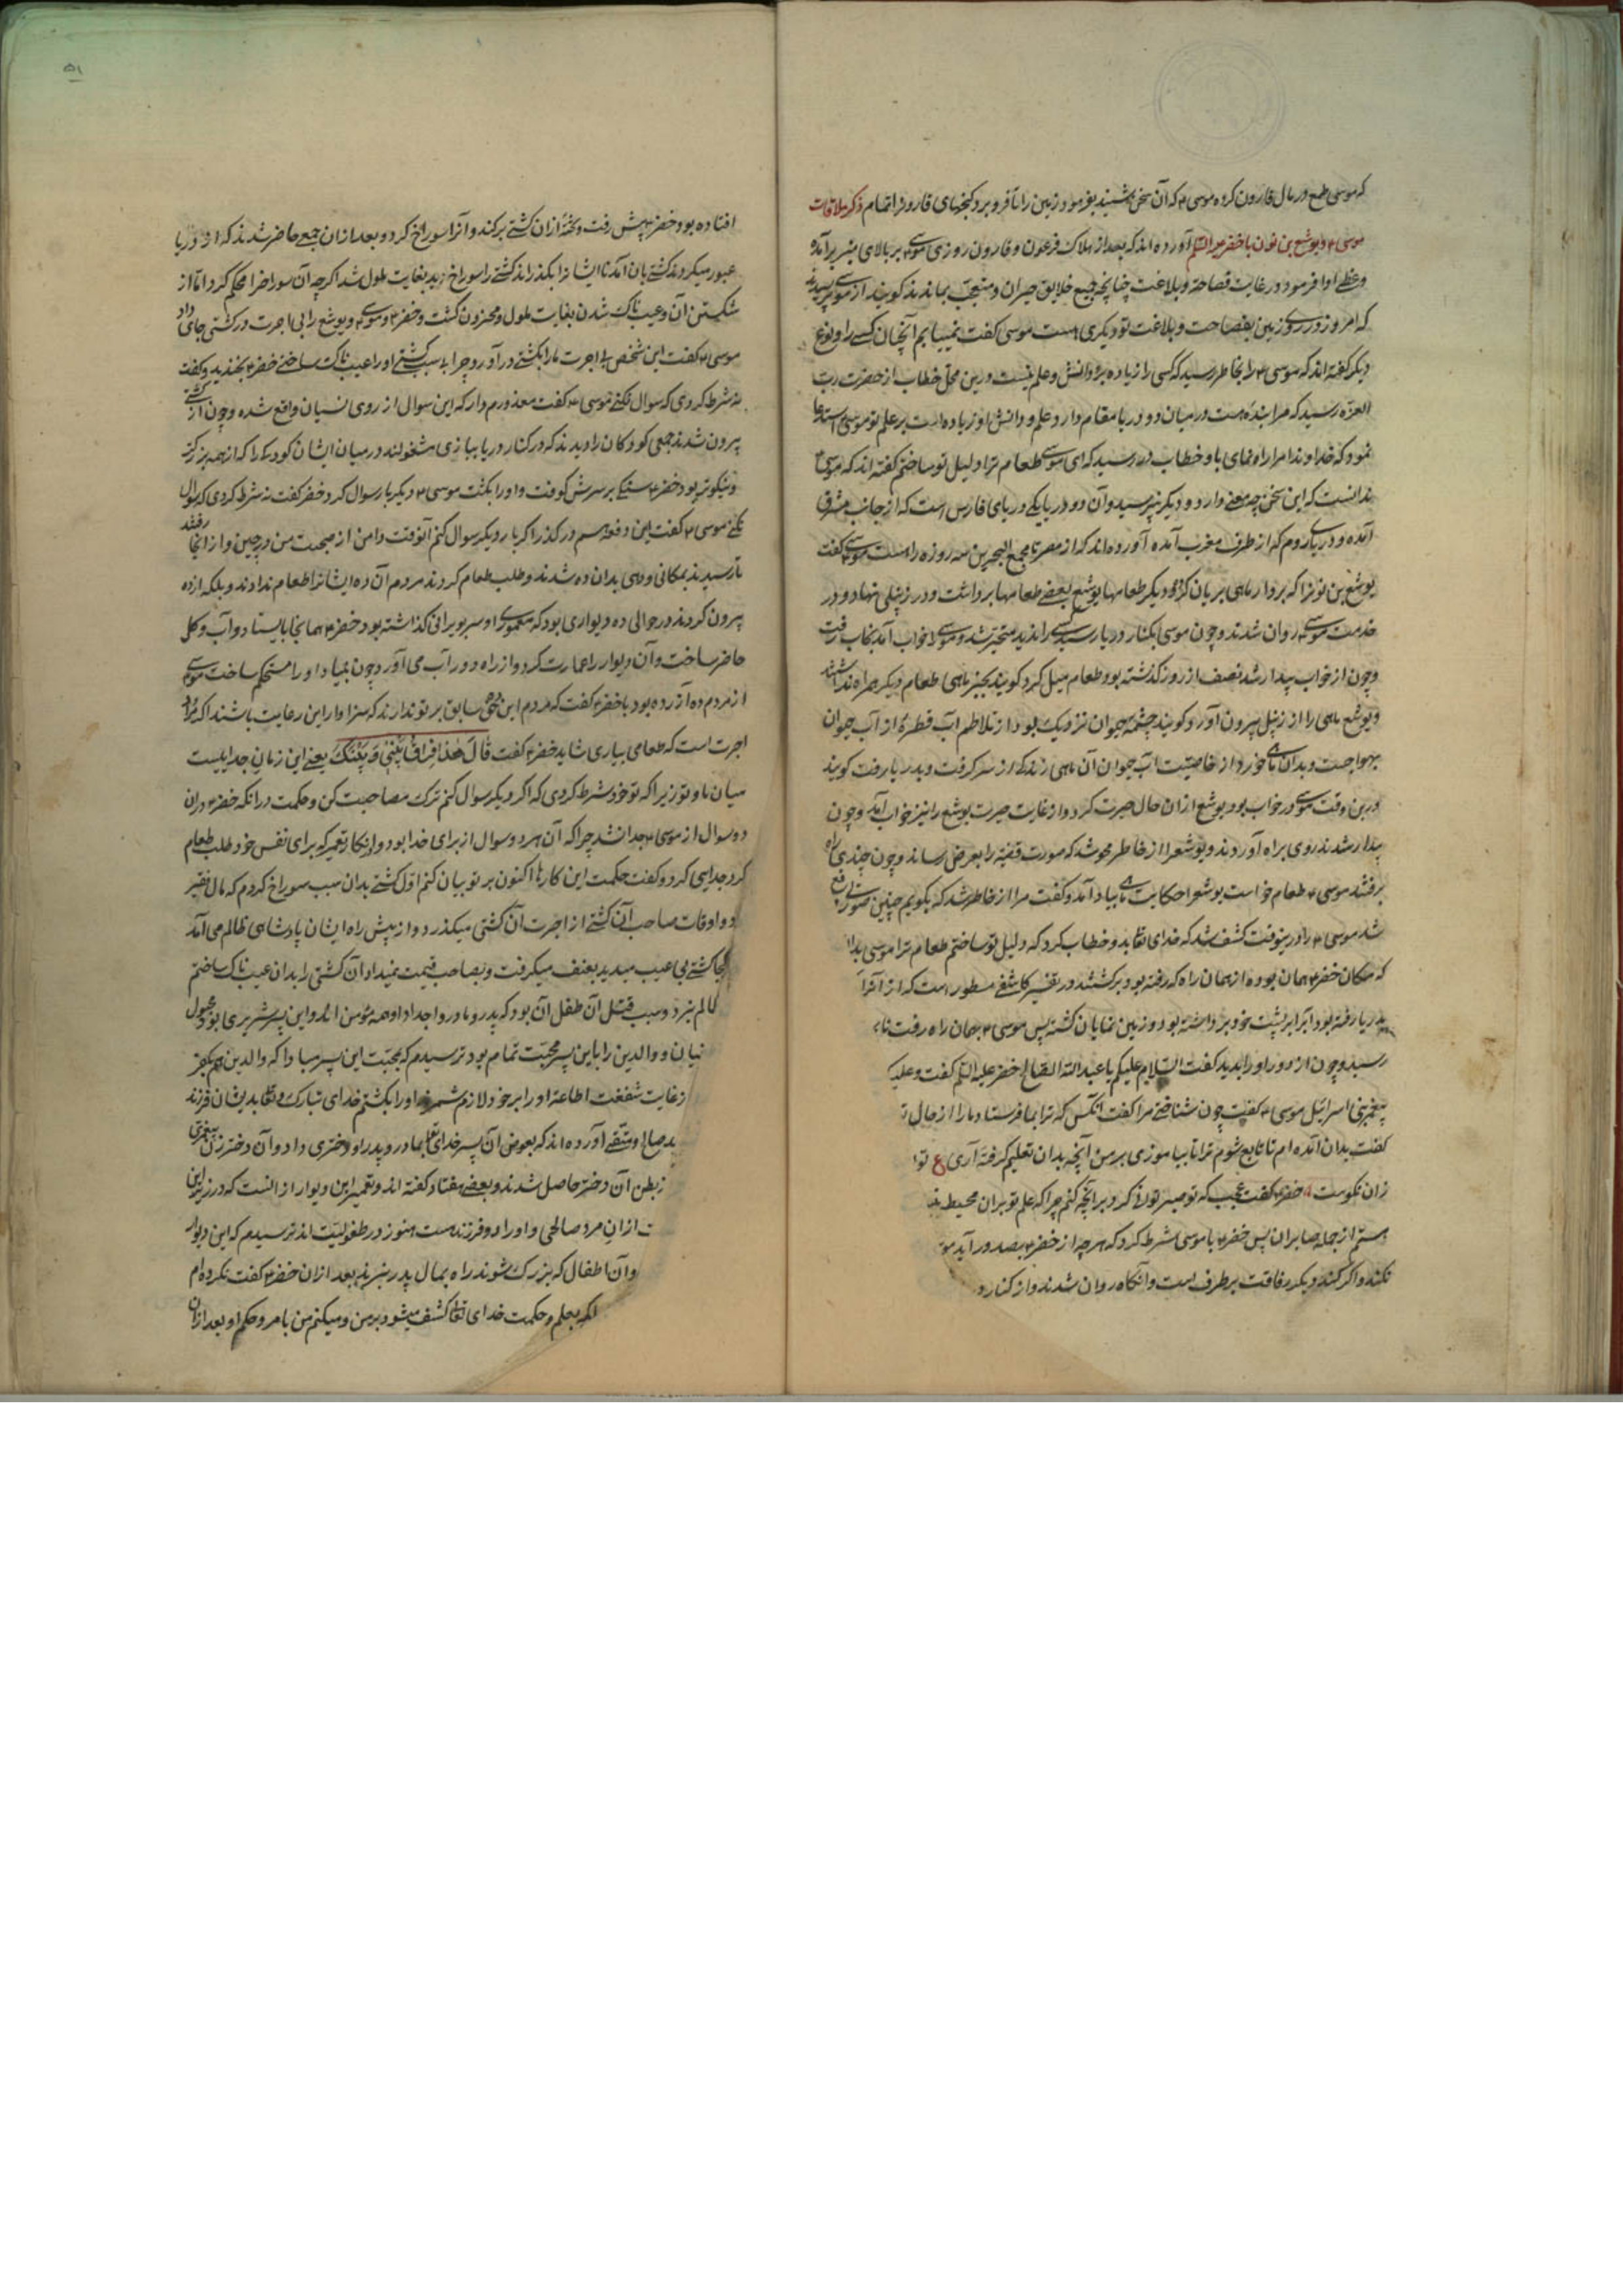 که موسی طمع در مال قارون کرده موسی ۴ که آن سخن شنید بفرمود زمین را تا فرو برد گنجهای قارون را تمام ذکر ملاقات
موسی ۴ و یوشع بن نون با خضر علیه السلام آورده اند که بعد از هلاک فرعون و قارون روزی موسی ۴ بر بالای منبر برآمده
وعظی ادا فرمود در غایت فصاحة و بلاغت چنانچه جمیع خلایق حیران و متعجب بماندند کویند از موسی پرسیدند
که امروز در روی زمین بفصاحت و بلاغت تو دیکری هست موسی کفت نمییابم آنچنان کسی را و نوع
دیکر کفته اند که موسی ۴ را بخاطر رسید که کسی را زیاده برو دانش و علم نیست درین محل خطاب از حضرت رب
العزه رسید که مرا بنده هست در میان دو دریا مقام دارد و علم و دانش او زیاده است بر علم تو موسی استدعا
نمود که خداوندا مرا راه نمای باو خطاب در رسید که ای موسی طعام ترا دلیل تو ساختم کفته اند که موسی ۴
ندانست که این سخن چه معنی دارد و دیکر نپرسید و آن دو دریا یکی دریای فارس است که از جانب مشرق
آمده و دریای روم که از طرف مغرب آمده آورده اند که از مصر تا مجمع البحرین سه روزه راه است موسی ۴ کفت
یوشع بن نون را که بردار ماهی بریان کرده و دیکر طعامها یوشع بعضی طعامها برداشت و در زنبیلی نهاد و در
خدمت موسی ۴ روان شدند و چون موسی بکنار دریا رسید کسی را ندید متحیر شد و موسی را خواب آمد بخواب رفت
و چون از خواب بیدار شد نصف از روز کذشته بود طعام میل کرد کویند بجز ماهی طعام دیکر همراه نداشتند
و یوشع ماهی را از زنبیل بیرون آورد و کویند چشمه حیوان نزدیک بود از تلاطم آب قطرهٔ از آب حیوان
بر هوا جست و بدان ماهی خورد از خاصیت آب حیوان آن ماهی زندکی از سر کرفت و بدریا رفت کویند
درین وقت موسی در خواب بود یوشع ازان حال حیرت کرد و از غایت حیرت یوشع را نیز خواب آمد و چون
بیدار شدند روی براه آوردند و یوشع را از خاطر محو شد که صورت قضیه را بعرض رساند و چون چندی راه
برفتند موسی ۴ طعام خواست یوشع را حکایت ماهی بیاد آمد و کفت مرا از خاطر شد که بکویم چنین صورتی واقع
شد موسی ۴ را درینوقت کشف شد که خدای تعالی بدو خطاب کرد که دلیل تو ساختم طعام ترا موسی بدا
که مکان خضر ۴ همان بوده از همان راه که رفته بود برکشتند در تفسیر کاشفی مسطور است که از آنراه
بدریا رفته بود آب را بر پشت خود برداشته بود و زمین نمایان کشته پس موسی ۴ بهمان راه رفت تا
رسید و چون از دور او را بدید کفت السلام علیکم یا عبد الله الصالح خضر علیه السلم کفت و علیک
پیغمبر بنی اسرائیل موسی ۴ کفت چون شناختی مرا کفت انکس که ترا بما فرستاد ما را از حال
کفت بدان آمده ام تا تابع شوم ترا تا بیاموزی بر من آنچه بدان تعلیم کرفته آری ع تو
زان نکوست خضر ۴ کفت عجب که تو صبر توانی کرد بر آنچه کنم چرا که علم تو بران محیط
هستم از جمله صابران پس خضر ۴ با موسی شرط کرد که هر چه از خضر ۴ بصدور آید مو
نکند و اکر کند دیکر رفاقت بر طرف است و آنکاه روان شدند و از کنار د
۵۱
افتاده بود خضر ۴ پیش رفت و تختهٔ ازان کشتی برکند و آنرا سوراخ کرد و بعد ازان جمعی حاضر شدند که از دریا
عبور میکردند کشتی بان آمد تا ایشانرا بکذراند کشتی را سوراخ دید بغایت ملول شد اکرچه آن سوراخ را محکم کرد اما از
شکستن آن و عیب ناک شدن بغایت ملول و محزون کشت و خضر ۴ و موسی ۴ و یوشع را بی اجرت در کشتی جای داد
موسی ۴ کفت این شخص بی اجرت ما را بکشتی در آورد چرا بی سبب کشتی او را عیب ناک ساختی خضر ۴ بخندید و کفت
نه شرط کردی که سوال نکنی موسی ۴ کفت معذورم دار که این سوال از روی نسیان واقع شده و چون از کشتی
بیرون شدند جمعی کودکان را دیدند که در کنار دریا ببازی مشغولند در میان ایشان کودکی را که از همه بزرکتر
و نیکوتر بود خضر ۴ سنکی بر سرش کوفت و او را بکشت موسی ۴ دیکر بار سوال کرد خضر کفت نه شرط کردی که سوال
نکنی موسی ۴ کفت این دفعه هم در کذر اکر بار دیکر سوال کنم آنوقت دامن از صحبت من در چین و از انجا رفتند
تا رسیدند بمکانی و دهی بدان ده شدند و طلب طعام کردند مردم آن ده ایشانرا طعام ندادند و بلکه از ده
بیرون کردند در حوالی ده دیواری بود که معموری او سر بویرانی کذاشته بود خضر ۴ همانجا بایستاد و آب و کل
حاضر ساخت و آن دیوار را عمارت کرد و از راه دور آب می آورد چون بنیاد او را مستحکم ساخت موسی
از مردم ده آزرده بود با خضر ۴ کفت که مردم این ده حق سابق بر تو ندارند که سزاوار این رعایت باشند اکر ترا
اجرت است که طعامی بیاری شاید خضر ۴ کفت قَالَ هٰذَا فِرَاقُ بَیْنِی وَ بَیْنِکَ یعنی این زمان جداییست
میان ما و تو زیرا که تو خود شرط کردی که اکر دیکر سوال کنم ترک مصاحبت کن و حکمت درانکه خضر ۴ دران
دو سوال از موسی ۴ جدا نشد چرا که آن هر دو سوال از برای خدا بود و انکار تعمیر که برای نفس خود طلب طعام
کرد جدایی کرد و کفت حکمت این کارها اکنون بر تو بیان کنم اول کشتی بدان سبب سوراخ کردم که مال فقیر
و اوقات صاحب آن کشتی از اجرت آن کشتی میکذرد و از پیش راه ایشان پادشاهی ظالم می آمد
کجا کشتی بی عیب میدید بعنف میکرفت و بصاحب قیمت نمیداد آن کشتی را بدان عیب ناک ساختم
ظالم نبرد و سبب قتل آن طفل آن بود که پدر و مادر و اجداد او همه مؤمن اند و این پسر شریری بود مجبول
و والدین را باین پسر محبت تمام بود ترسیدم که بمحبت این پسر مبادا که والدین هم بکفر
ز غایت شفقت اطاعة او را بر خود لازم شمرند او را بکشتم خدای تبارک و تعالی بدیشان فرزند
صالح و متقی آورده اند که بعوض آن پسر خدای تعالی بمادر و پدر او دختری داد و آن دختر زن پیغمبری
ز بطن آن دختر حاصل شدند و بعضی هفتاد کفته اند و تعمیر این دیوار از انست که در زیر این
ت ازان مرد صالحی و او را دو فرزند هست هنوز در طفولیت اند ترسیدم که این دیوار
و آن اطفال که بزرک شوند راه بمال پدر نبرند بعد ازان خضر ۴ کفت نکرده ام
بعلم و حکمت خدای تعالی کشف میشود بر من و میکنم من بامر و حکم او بعد ازان